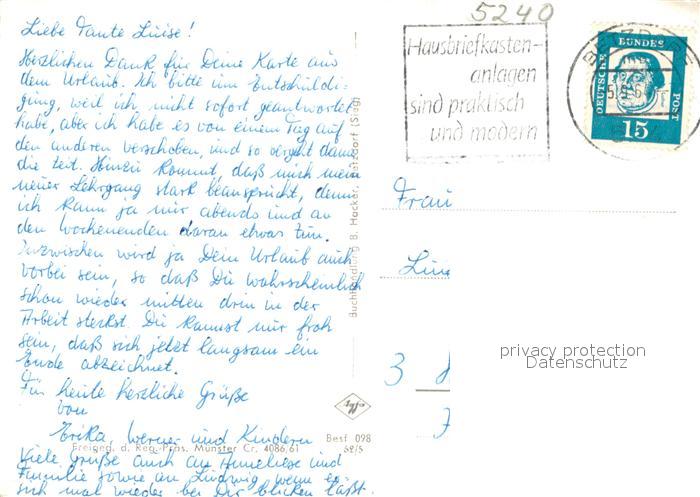 5240
Hausbriefkasten-
anlagen
sind praktisch
und modern
DEUTSCHE BUNDES POST
15
Liebe Tante Luise!
Herzlichen Dank für Deine Karte aus
dem Urlaub. Ich bitte um Entschuldi-
gung, weil ich nicht sofort geantwortet
habe, aber ich habe es von einem Tag auf
den anderen verschoben, und so vergeht dann
die Zeit. Hinzu kommt, daß mich mein
neuer Lehrgang stark beansprucht, denn
ich kann ja nur abends und an
den Wochenenden daran etwas tun.
Inzwischen wird ja Dein Urlaub auch
vorbei sein, so daß Du wahrscheinlich
schon wieder mitten drin in der
Arbeit steckst. Du kannst nur froh
sein, daß sich jetzt langsam ein
Ende abzeichnet.
Für heute herzliche Grüße
von
Erika, Werner und Kindern
Viele Grüße auch an Anneliese und
Familie sowie an Ludwig wenn er
sich mal wieder bei Dir blicken läßt.
Buchhandlung B. Hacker, Betzdorf (Sieg)
Agfa
Best 098
62/5
Freigeg. d. Reg.-Präs. Münster Cr. 4086/61
Frau
3
privacy protection
Datenschutz